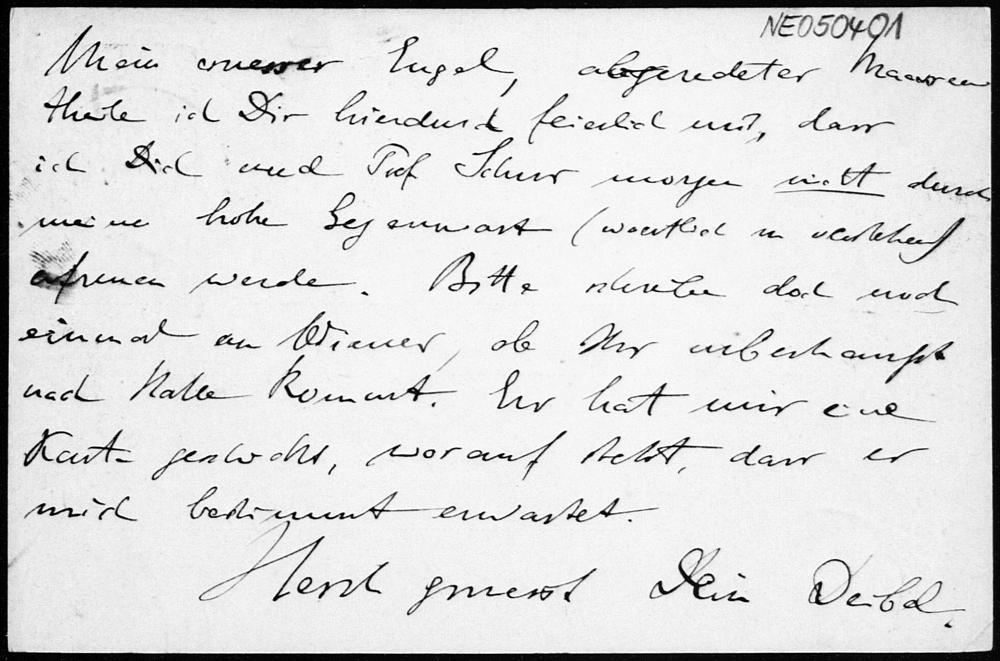 NE050401
Mein süsser Engel, abgeredeter Maassen
theile ich Dir hierdurch feierlich mit, dass
ich Dich und Prof Schur morgen nicht durch
meine hohe Gegenwart (wörtlich zu verstehen)
erfreuen werde. Bitte schreibe doch noch
einmal an Wiener, ob Ihr ueberhaupt
nach Halle kommt. Er hat mir eine
Karte geschickt, worauf steht, dass er
mich bestimmt erwartet.
Herzl gruesst Dein Deibel.